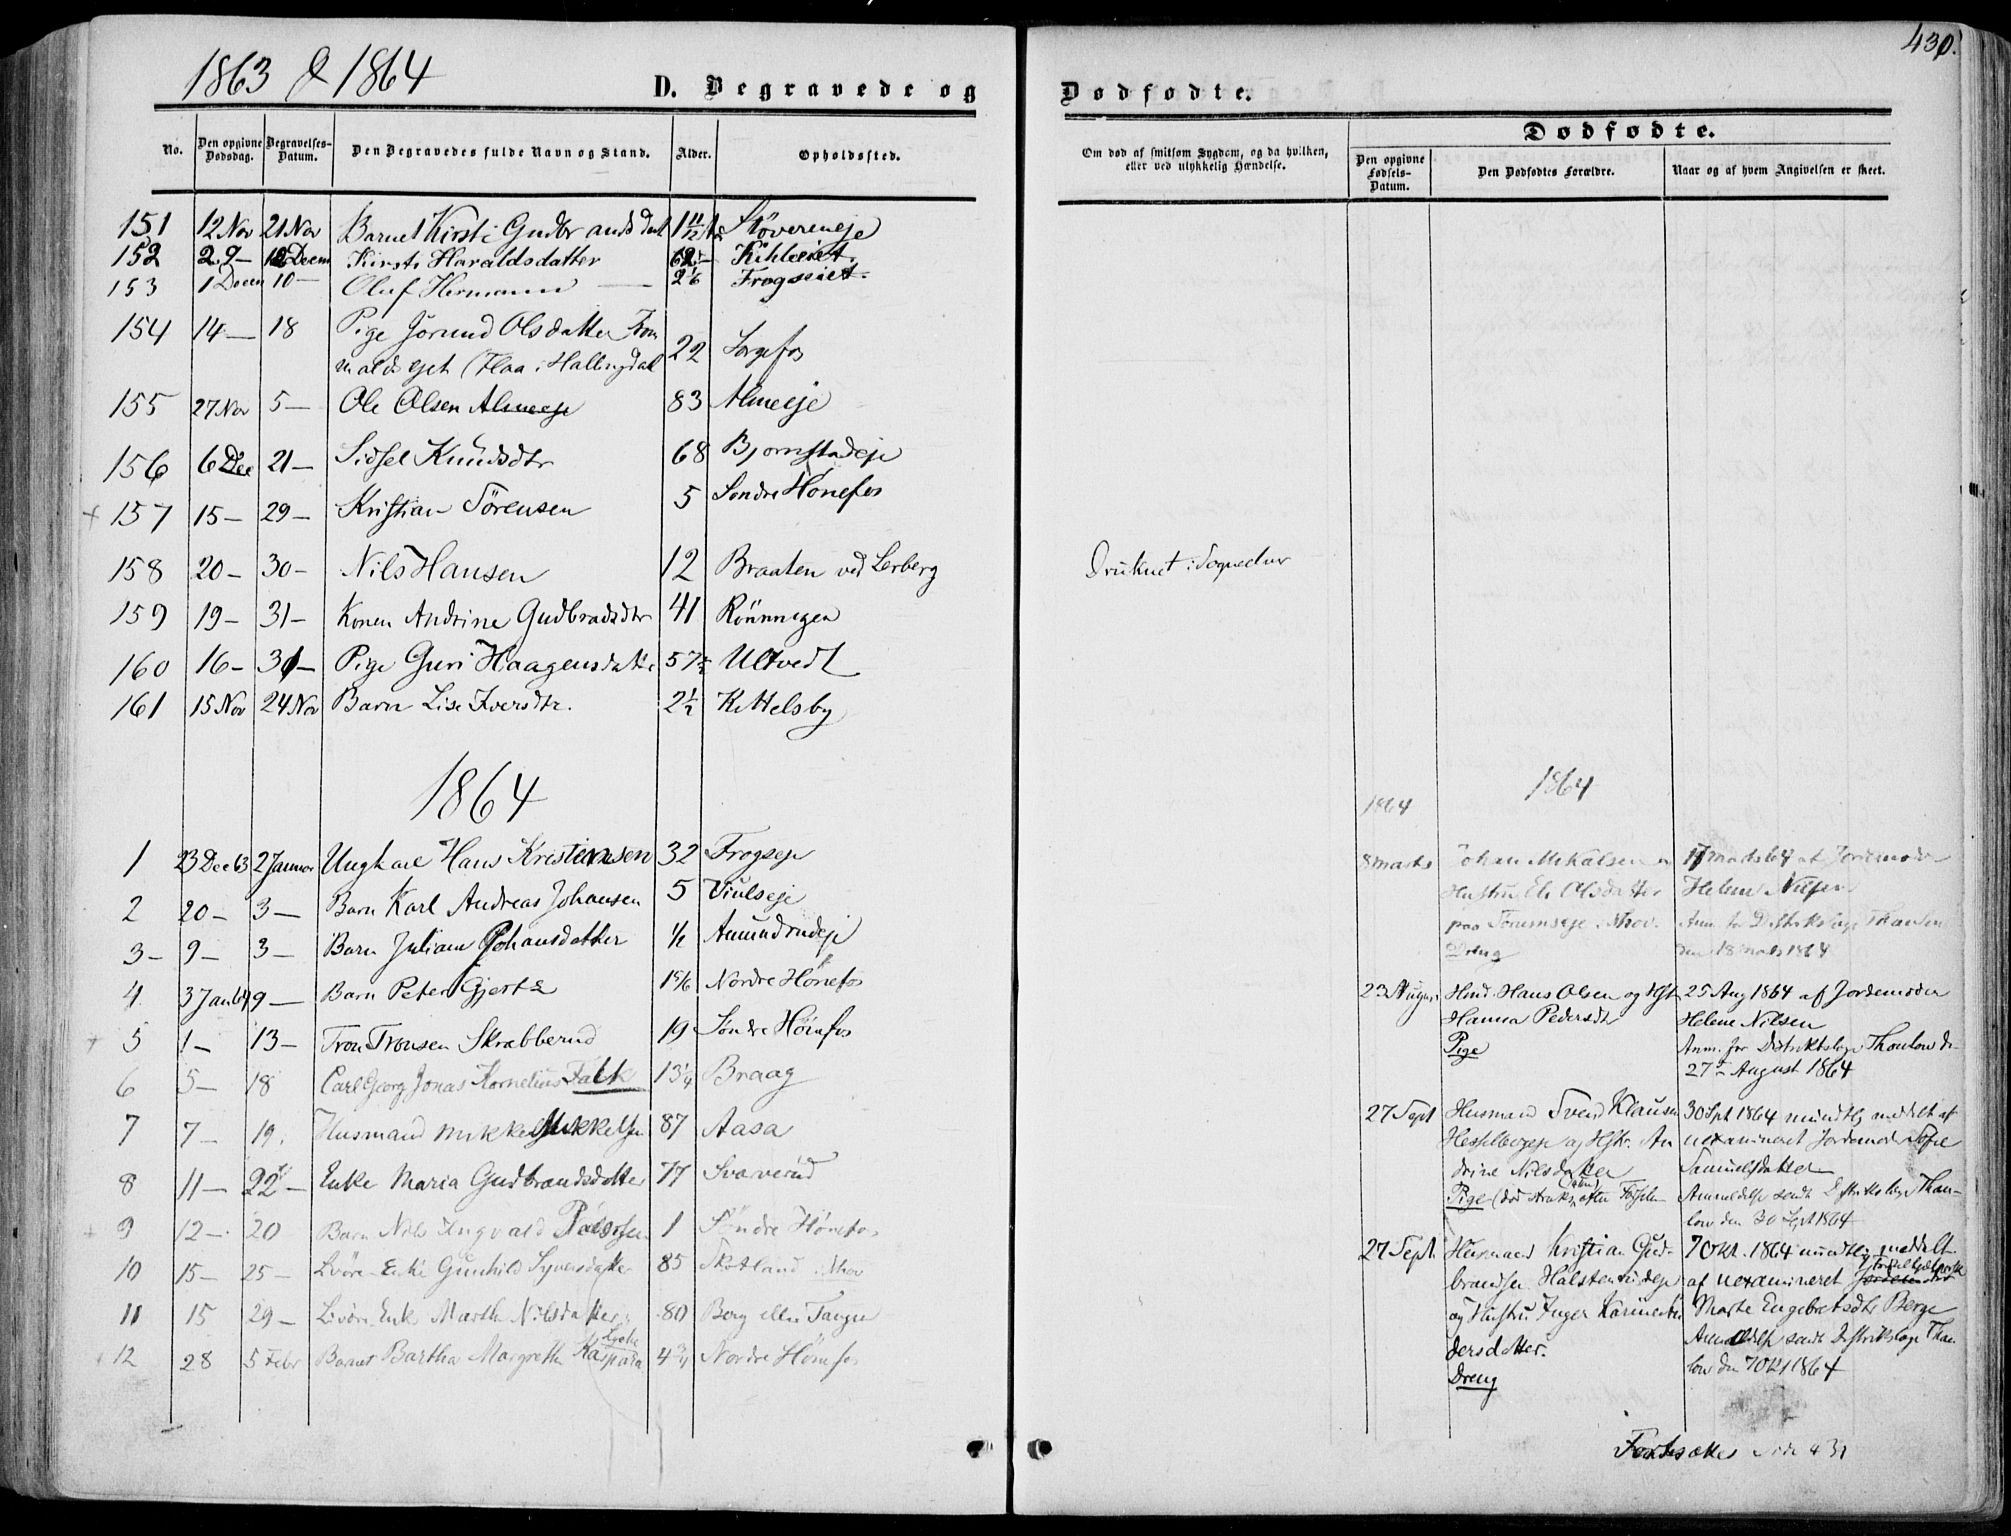 1863 & 1864
D. Begravede og
No.
Den opgivne Dødsdag.
Begravelses-Datum.
Den Begravedes fulde Navn og Stand.
Alder.
Opholdssted.
151 12 Nov 21 Nov Barnet Kirsti Gudbrandsdat 1 11/12 Støvereneje
152 29 — 12 Decem Kirsti Haraldsdatter 62 Kihleeiet.
153 1 Decem 10 — Oluf Hermann — 2 1/6 Frogseiet.
154 14 — 18 Pige Jörund Olsdatter
(Flaa i Hallingdal 22
155 27 Nov 5 — Ole Olsen Almeeje 83 Almeeje
156 6 Dec 21 — Sidsel Knudsdtr 68 Bjørnstadeje
+ 157 15 — 29 — Kristian Sörensen 5 Søndre Hönefos
158 20 — 30 — Nils Hansen 12 Braaten ved Lerberg
159 19 — 31 — Konen Andrine Gudbradsdtr 41 Rönningen
160 16 — 31 — Pige Guri Haagensdatter 57 Ultvedt
161 15 Nov 24 Nov Barn Lise Iversdtr. 2 1/2 Kittelsby
1864
1 23 Dec 63 2 Januar Ungkarl Hans Kristiansen 32 Frogseje
2 20 — 3 — Barn Karl Andreas Johansen 5 Viulseje
3 — 9 — 3 — Barn Juliane Johansdatter 1/2 Amundrudeje
4 3 Jan 64 9 — Barn Peter Gjerts Nordre Hönefos
+ 5 1 — 13 — Tron Tronsen Skrabberud 19 Søndre Hönefos
6 5 — 18 Carl Georg Jonas Kornelius Falk 13 1/4 Braag
7 7 — 19. Husmand Mikkel Mikkelsen 87 Aasa
8 11 — 22 — Enke Maria Gudbrandsdatter 77 Svarverud
+ 9 12 — 20 Barn Nils Ingvald Pedersen 1 Söndre Hönefos
10 15 — 25 — Enke Gunhild Syversdatter 85 i Hov
11 15 29 — Enke Marthe Nilsdatter 80 Berg eller Tangen
+ 12 28 5 Febr Barnet Bartha Margrethe Kaspara 4 3/4 Nordre Hönefos
430.
Dødfødte.
Om død af smitsom Sygdom, og da hvilken, eller ved ulykkelig Hændelse.
Dødfødte.
Den opgivne Fødsels-Datum.
Den Dødfødtes Forældre.
Naar og af hvem Angivelsen er skeet.
Druknet i Sogneelven
1864
1864
8 marts Johan Mikalsen og 17 marts 64 af Jordemoder
Hustru Eli Olsdatter Helene Nilsen
paa Anm. for Distriktslæge Thaulow
Dreng den 18 marts 1864
23 August Hmd. Hans Olsen og Hstr 25 Aug 1864 af Jordemoder
Hanna Pedersdt Helene Nilsen
Pige Anm. for Distriktslæge Thaulow d.
27de August 1864
27 Sept Husmand Svend Klausen 30 Sept 1864 mundtlig meddelt af
Hesselbergeje og Hstr. An uexamineret Jordemoder Sofie
drine Nilsdatter Samuelsdatter
Pige (død straks efter Fødselen) Anmeldelse sendt Distriktslæge Thau-
low den 30 Sept 1864
27 Sept. Husmand Kristian Gud- 7 Okt. 1864 mundtlig meddelt
brandsen Halstenrudeje af uexamineret Jordemoder Fødselhjælperske
og Hustru Inger Karine An Marte Engebretsdtr Berge
dersdatter. Anmeldelse sendt Distriktslæge Thau
Dreng low den 7 Okt 1864
Fortsættes side 431